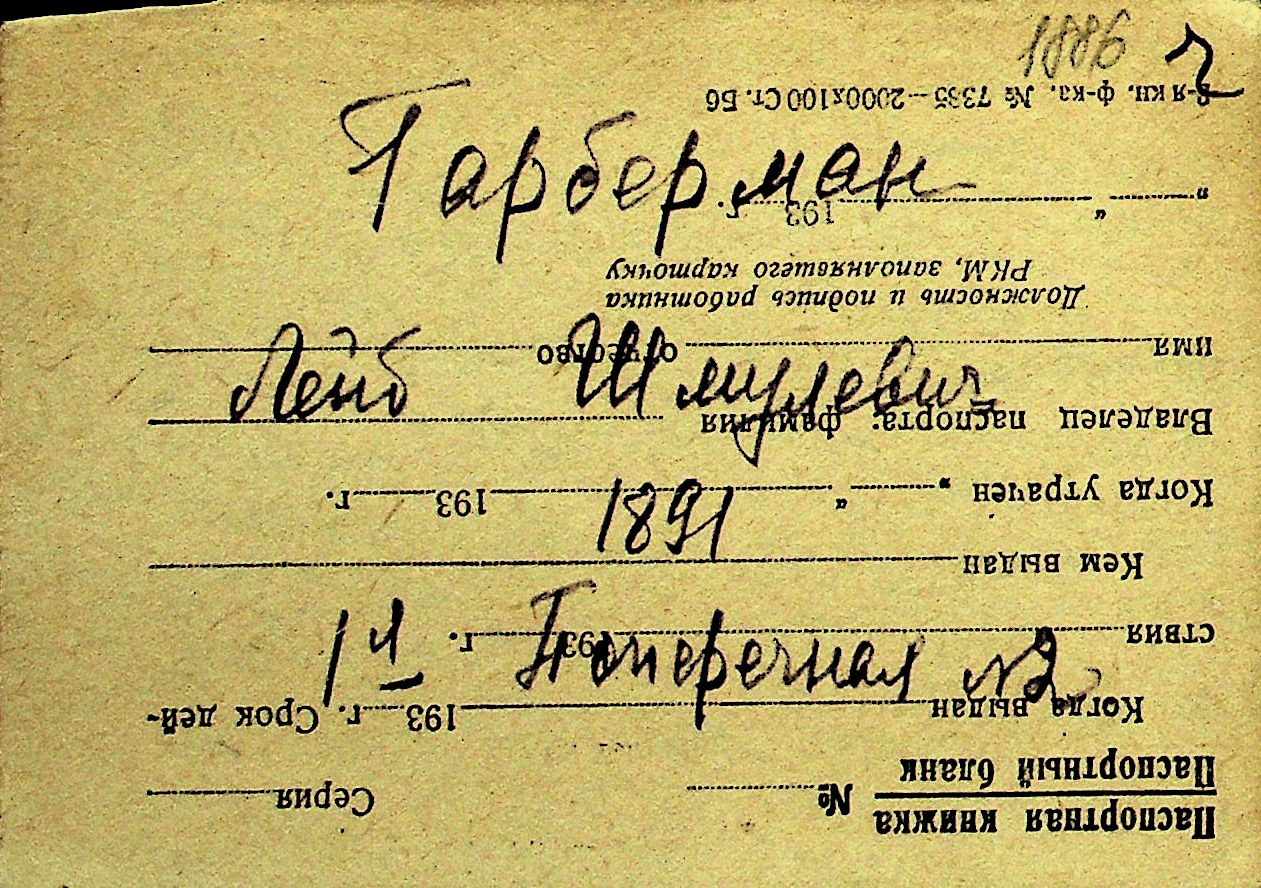 1886 ч
Гарберман
Лейб Шмулевич
1891
1я Поперечная №2
Паспортная книжка
Паспортный бланк № Серия
Когда выдан 193 г. Срок дей-
ствия 193 г.
Кем выдан
Когда утрачен „ “ 193 г.
Владелец паспорта: фамилия
имя отчество
Должность и подпись работника
РКМ, заполнявшего карточку
„ “ 193 г.
я кн. ф-ка. № 7335—2000х100 Ст. Б6